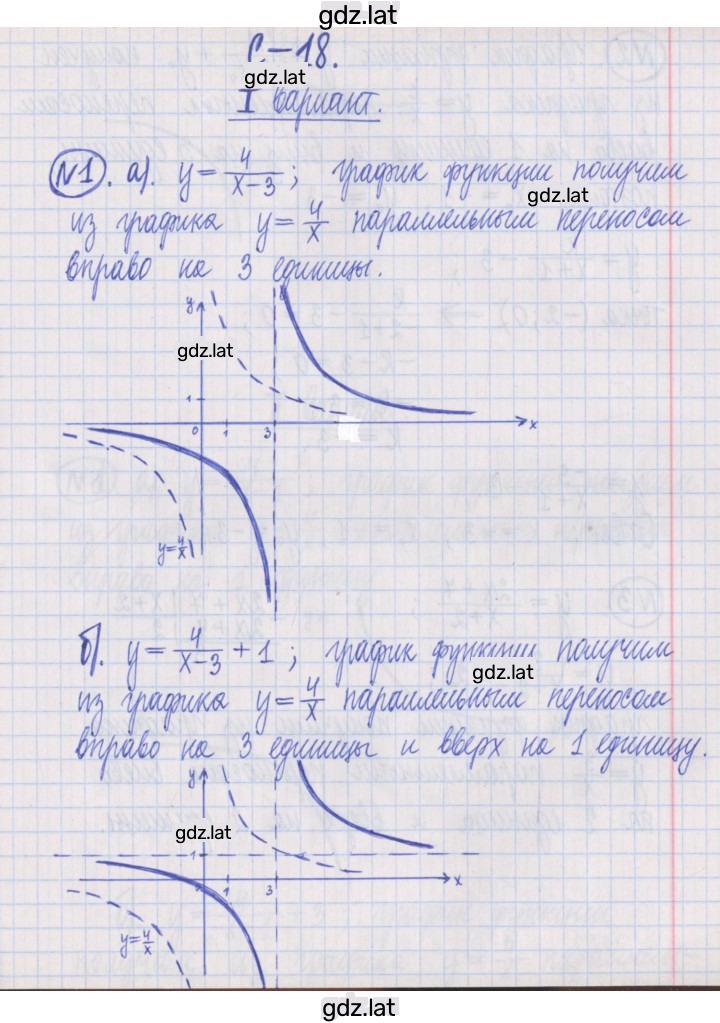 gdz.lat
С-18.
gdz.lat
I вариант.
№1. а). y = 4/(x-3); график функции получим
gdz.lat
из графика y = 4/x параллельным переносом
вправо на 3 единицы.
y
gdz.lat
1
0 1 3 x
y = 4/x
б). y = 4/(x-3) + 1; график функции получим
gdz.lat
из графика y = 4/x параллельным переносом
вправо на 3 единицы и вверх на 1 единицу.
y
gdz.lat
1
1 3 x
y = 4/x
gdz.lat